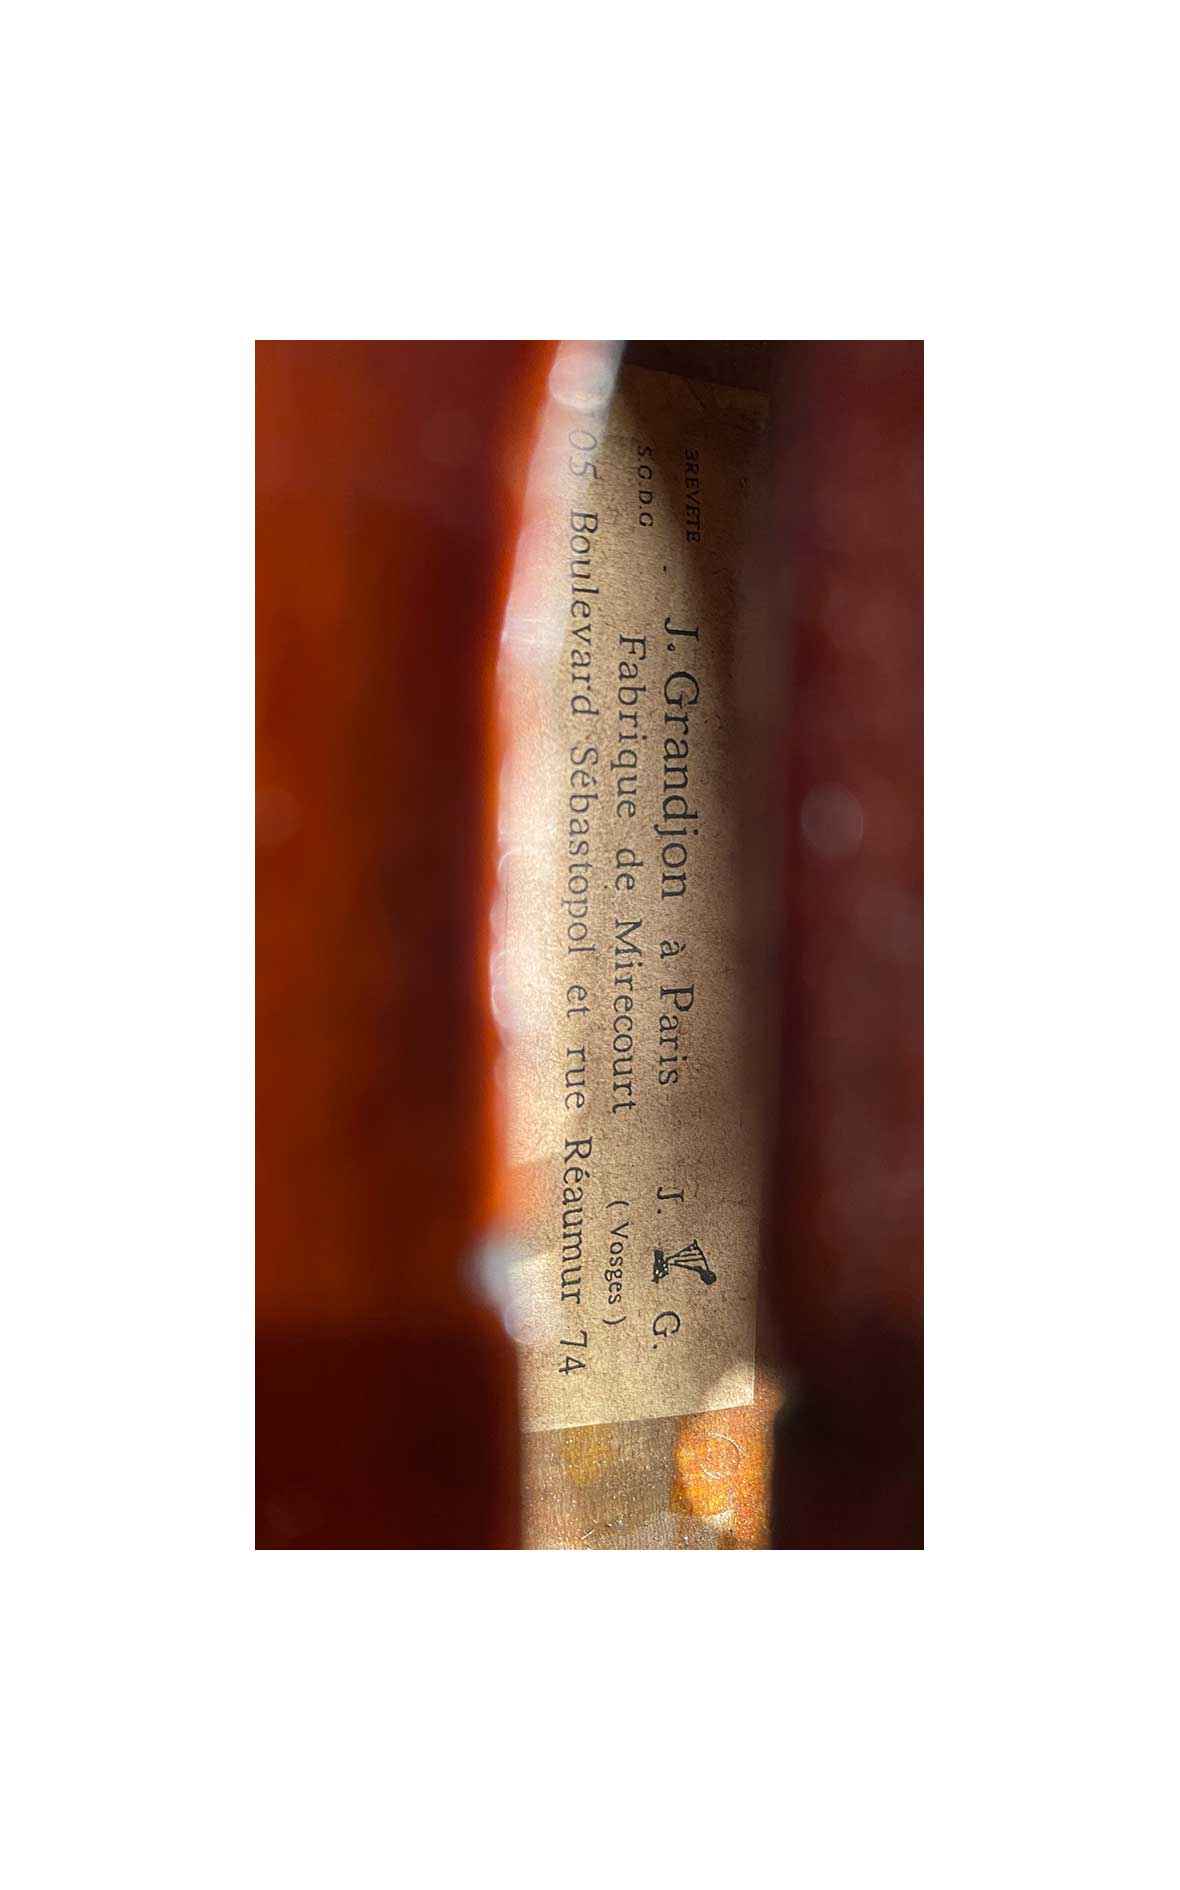 BREVETE
S.G.D.G
J. Grandjon à Paris
J. G.
Fabrique de Mirecourt (Vosges)
105 Boulevard Sébastopol et rue Réaumur 74